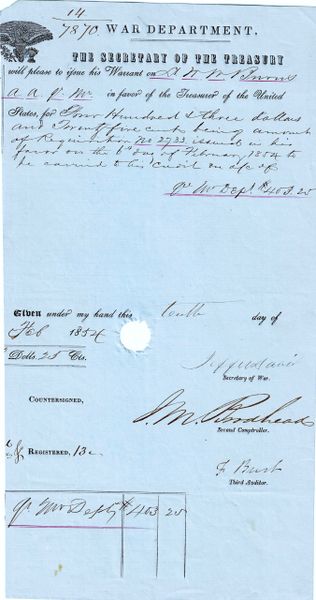 14
7870 WAR DEPARTMENT.
THE SECRETARY OF THE TREASURY
will please to issue his Warrant on
a a q. Mr in favor of the Treasurer of the United
States, for Four Hundred & three dollars
and Twenty five cents being amount
of Requisition No 2733 issued in his
favor on the 6th day of February, 1854 to
be carried to his credit on a/c of
qr Mr Dept $403.25
Given under my hand this tenth day of
Feb 1854
Dolls. 25 Cts.
Jeffn Davis
Secretary of War.
COUNTERSIGNED,
J. M. Brodhead
Second Comptroller.
REGISTERED, 13
F Burt
Third Auditor.
qr Mr Dept $403 25